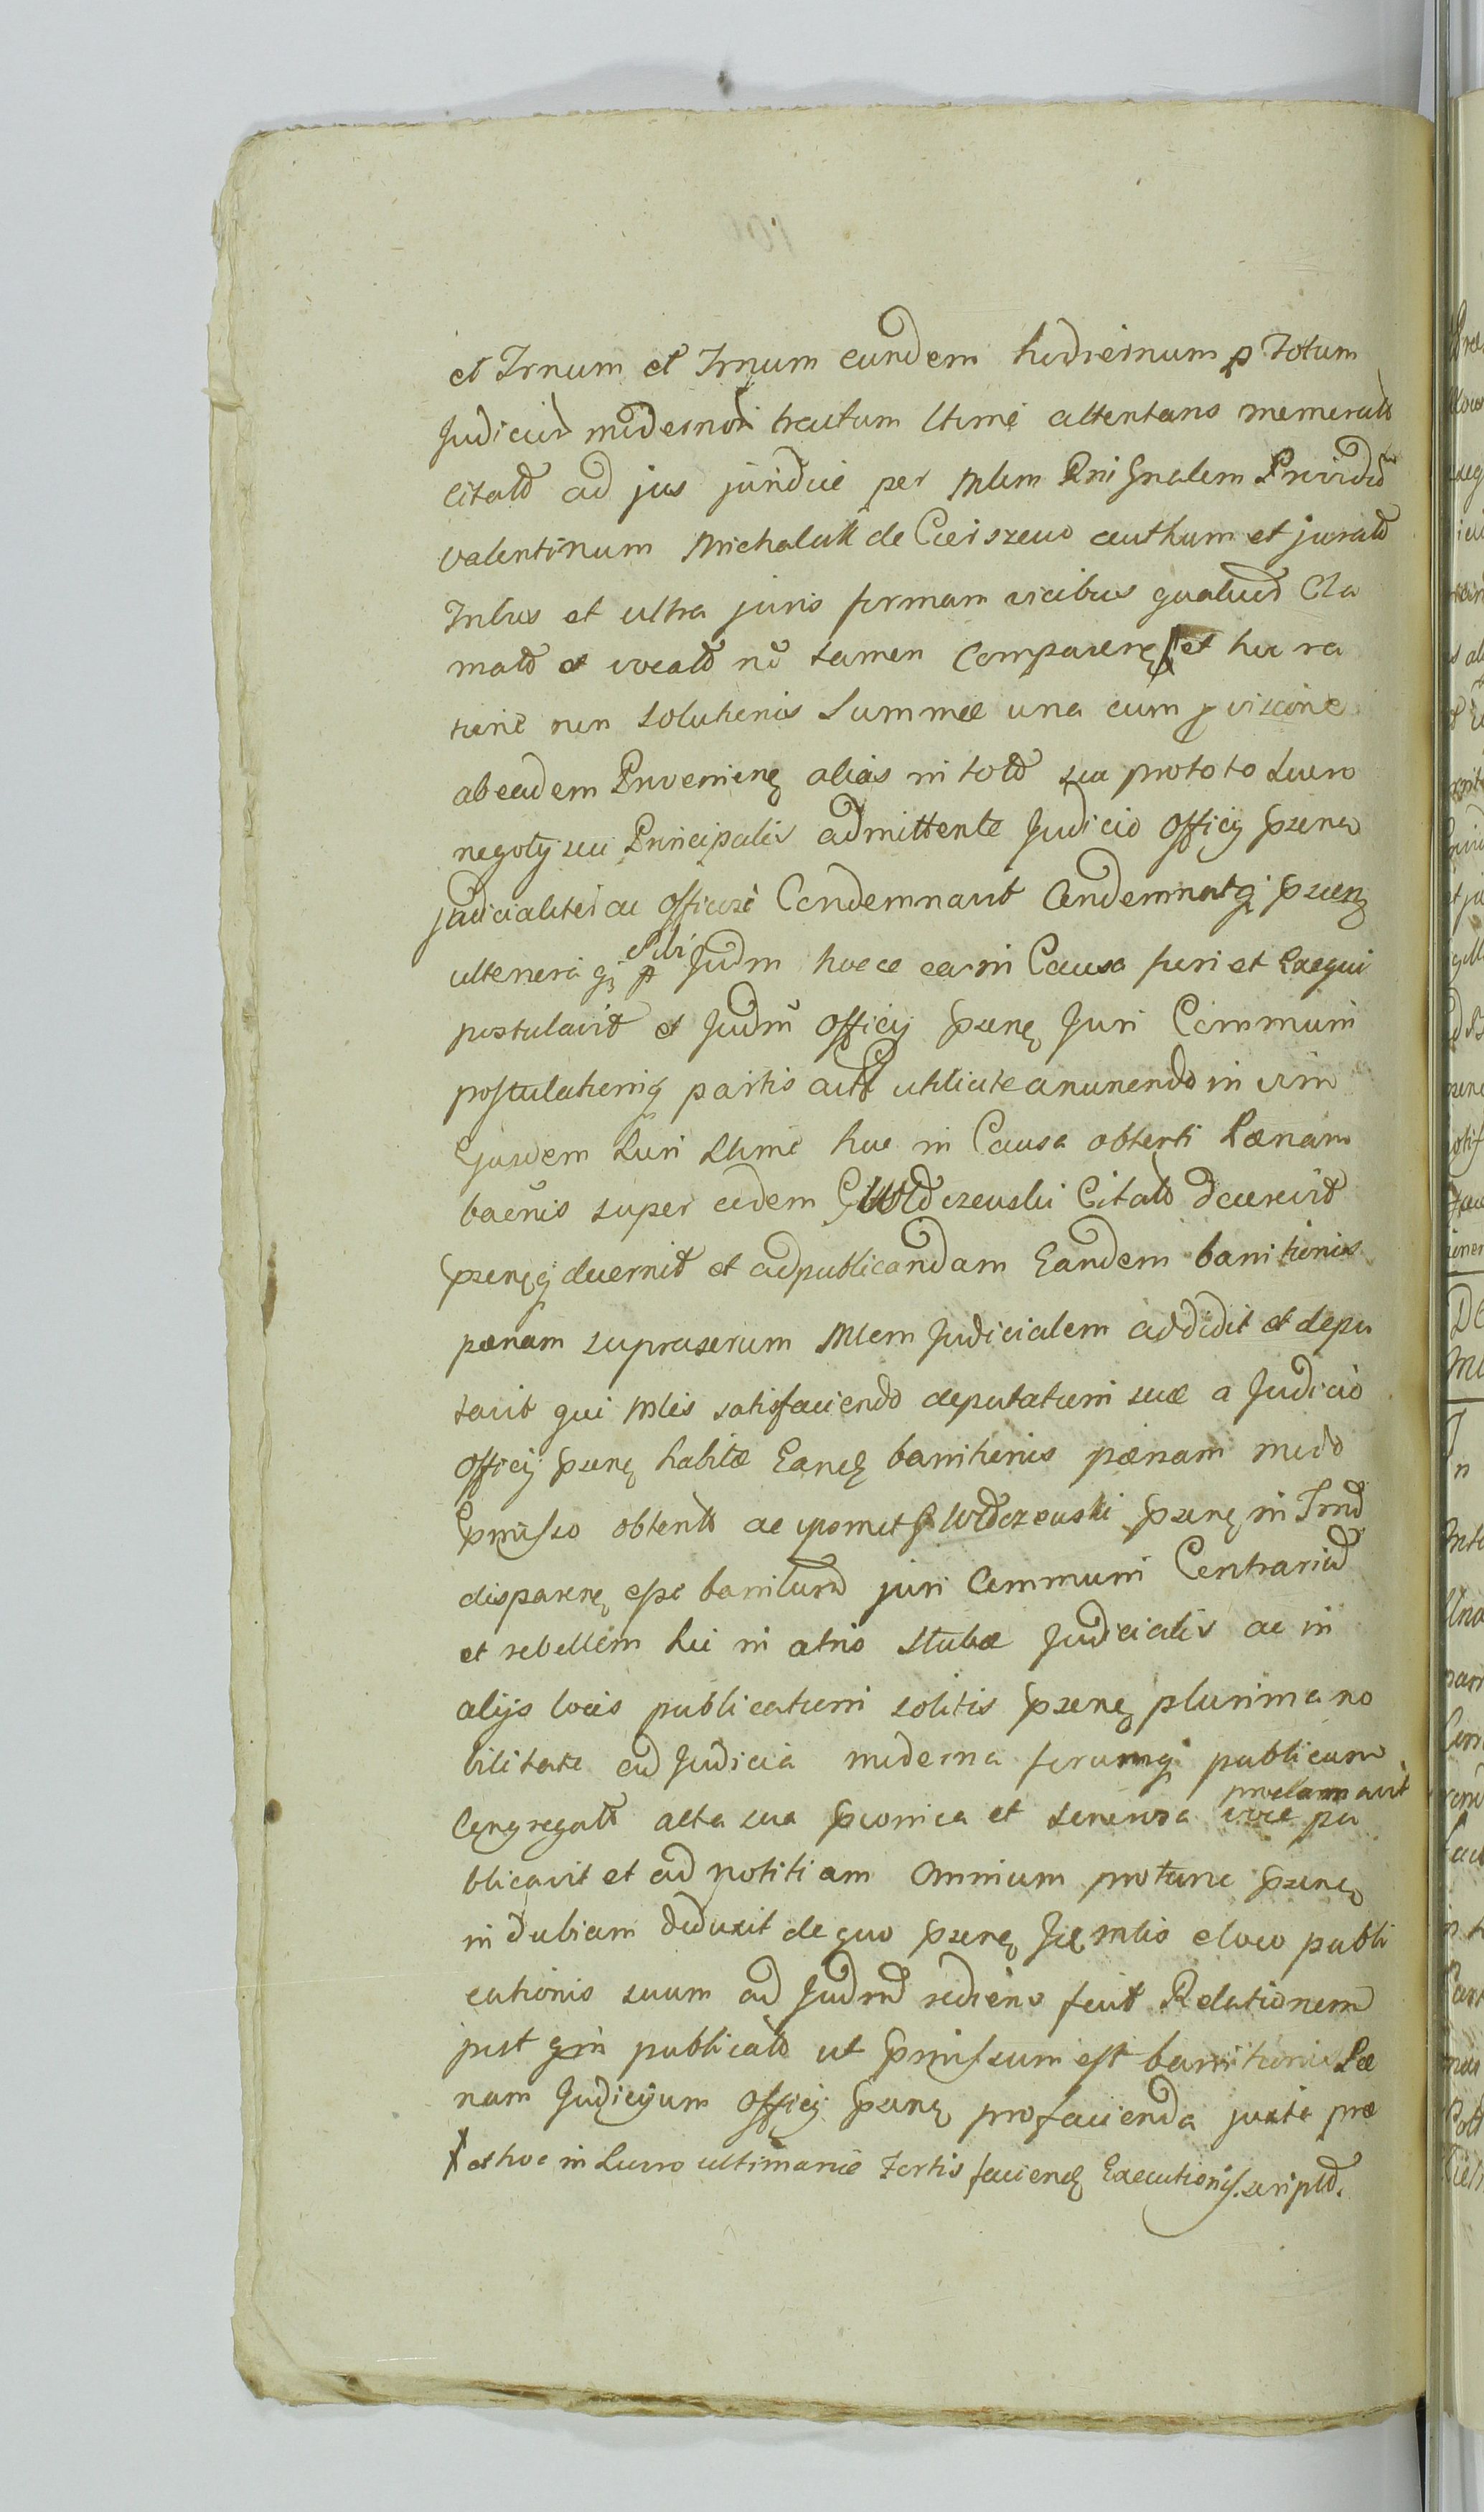 et Trnum et Trnum eundem hodiernum p totum
Judicior modernor tractum ltime attentans memerato
citato ad jus juridice per Mlem Rni Gnalem Providu
Valentinum Michaluk de authum et jurato
Inbus et ultra juris formam vicibus Cla
mato et vocato no tamen Comparen et hoc ra
tione non solutionis Summae una cum provisione
ab eadem Provenien alias in toto sua pro toto Lucro
negotij sui Principalis admittente Judicio Officij Pzens
judicialiter ac Officiose Condemnavit Condemnatq Przen
ulteriorique sibi p Judm hocce ea in Causa fieri et Exequi
postulavit et Judm Officij Pzens Juri Communi
postulationiq partis act utilitate annuendo in vim
Ejusdem Lucri Ltime hoc in Causa obtenti Paenam
baenis super eodem Citato decrevit
Pzensq decernit et ad publicandam Eandem banitionis
paenam suprascrum Mlem Judicialem addidit et depu
tavit qui Mlis satisfaciendo deputationi suae a Judicio
Officij Pzens habitae Eand banitionis paenam modo
Pmisso obtento ac Pzens in Trno
disparen esse banitum juri Communi Contrarium
et rebellem hic in atrio Stubae Judicialis ac in
alijs locis publicationi solitis Pzens plurima no
bilitate ad Judicia moderna forumq publicum
Congregato alta sua Pconica et sonorosa voce proclamavit pu
blicavit et ad notitiam Omnium protunc Pzens
in dubiam deduxit de quo Pzens Jdem Mlis eloco publi
cationis suum ad Judm rediens fecit Relationem
post qm publicato ut Pmissum est banitionis Pae
nam Judicijum Officij Pzens pro facienda juxta prae
et hoc in Lucro ultimarie tertis faciend Executionis. scripto.